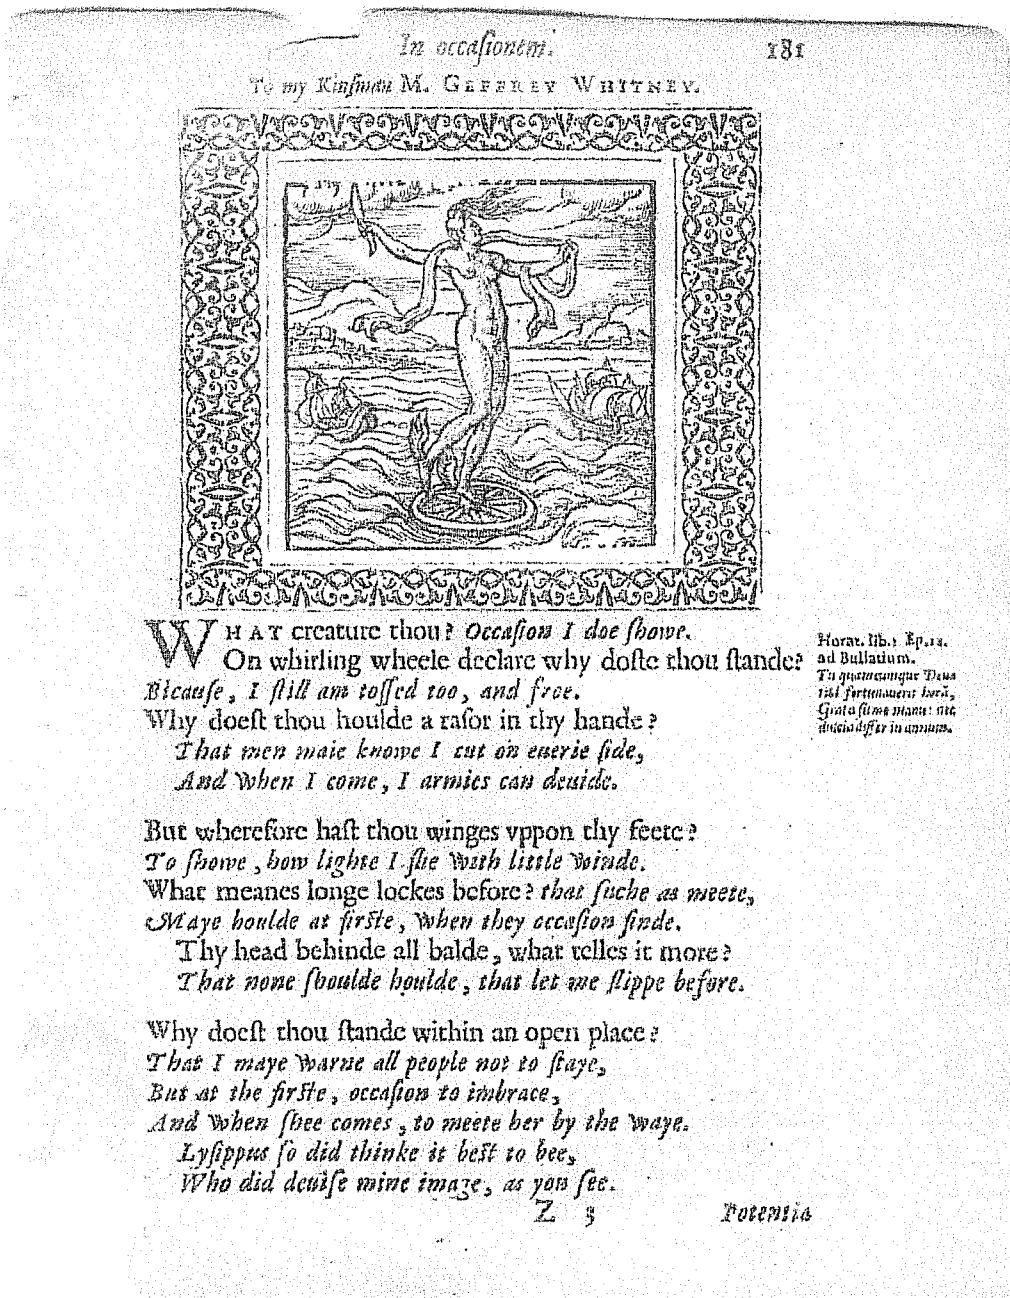 In occaſionem.
181
To my Kinſman M. GEFFREY WHITNEY.
WHAT creature thou? Occaſion I doe ſhowe.
On whirling wheele declare why doſte thou ſtande?
Bicauſe, I ſtill am toſſed too, and froe.
Why doeſt thou houlde a raſor in thy hande?
That men maie knowe I cut on euerie ſide,
And when I come, I armies can deuide.
But wherefore haſt thou winges vppon thy feete?
To ſhowe, how lighte I flie with little winde.
What meanes longe lockes before? that ſuche as meete,
Maye houlde at firſte, when they occaſion finde.
Thy head behinde all balde, what telles it more?
That none ſhoulde houlde, that let me ſlippe before.
Why doeſt thou ſtande within an open place?
That I maye warne all people not to ſtaye,
But at the firſte, occaſion to imbrace,
And when ſhee comes, to meete her by the waye.
Lyſippus ſo did thinke it beſt to bee,
Who did deuiſe mine image, as you ſee.
Horat. lib. 1 Ep.
ad Bullatium.
Tu quamcunque Deus
tibi fortunauerit horā,
Grata ſume manu: nec
dulcia differ in annum.
Z 3
Potentia